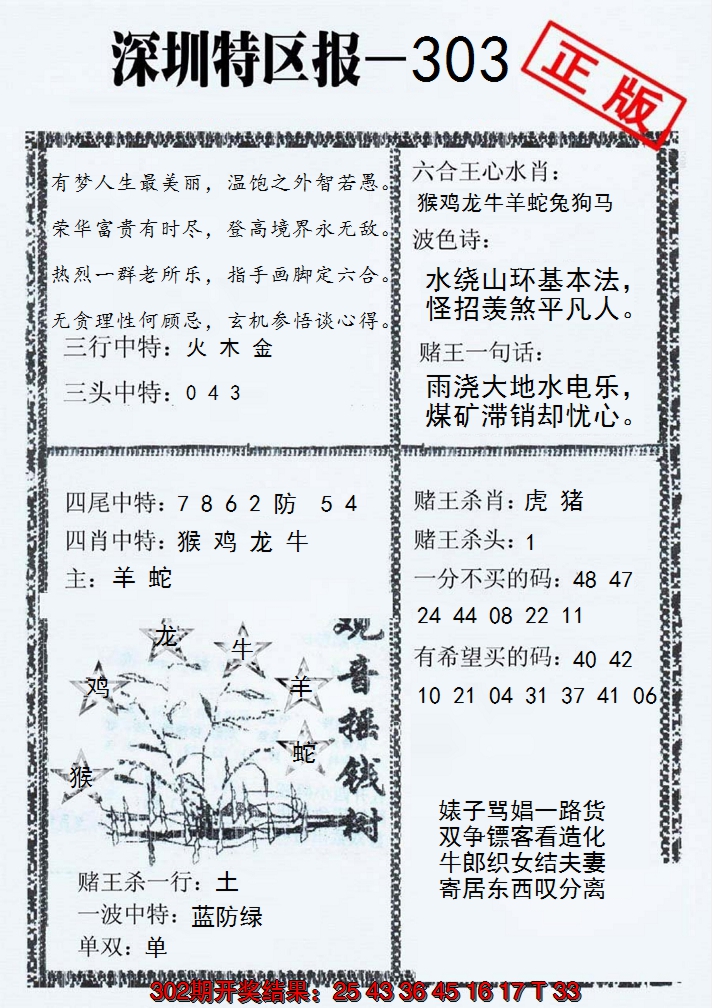 深圳特区报—303
正版
有梦人生最美丽，温饱之外智若愚。
荣华富贵有时尽，登高境界永无敌。
热烈一群老所乐，指手画脚定六合。
无贪理性何顾忌，玄机参悟谈心得。
三行中特：火 木 金
三头中特：0 4 3
六合王心水肖：
猴鸡龙牛羊蛇兔狗马
波色诗：
水绕山环基本法，
怪招羡煞平凡人。
赌王一句话：
雨浇大地水电乐，
煤矿滞销却忧心。
四尾中特：7 8 6 2 防 5 4
四肖中特：猴 鸡 龙 牛
主：羊 蛇
龙
牛
鸡
羊
蛇
猴
观音摇钱树
赌王杀一行：土
一波中特：蓝防绿
单双：单
赌王杀肖：虎 猪
赌王杀头：1
一分不买的码：48 47
24 44 08 22 11
有希望买的码：40 42
10 21 04 31 37 41 06
婊子骂娼一路货
双争镖客看造化
牛郎织女结夫妻
寄居东西叹分离
302期开奖结果：25 43 36 45 16 17 T 33